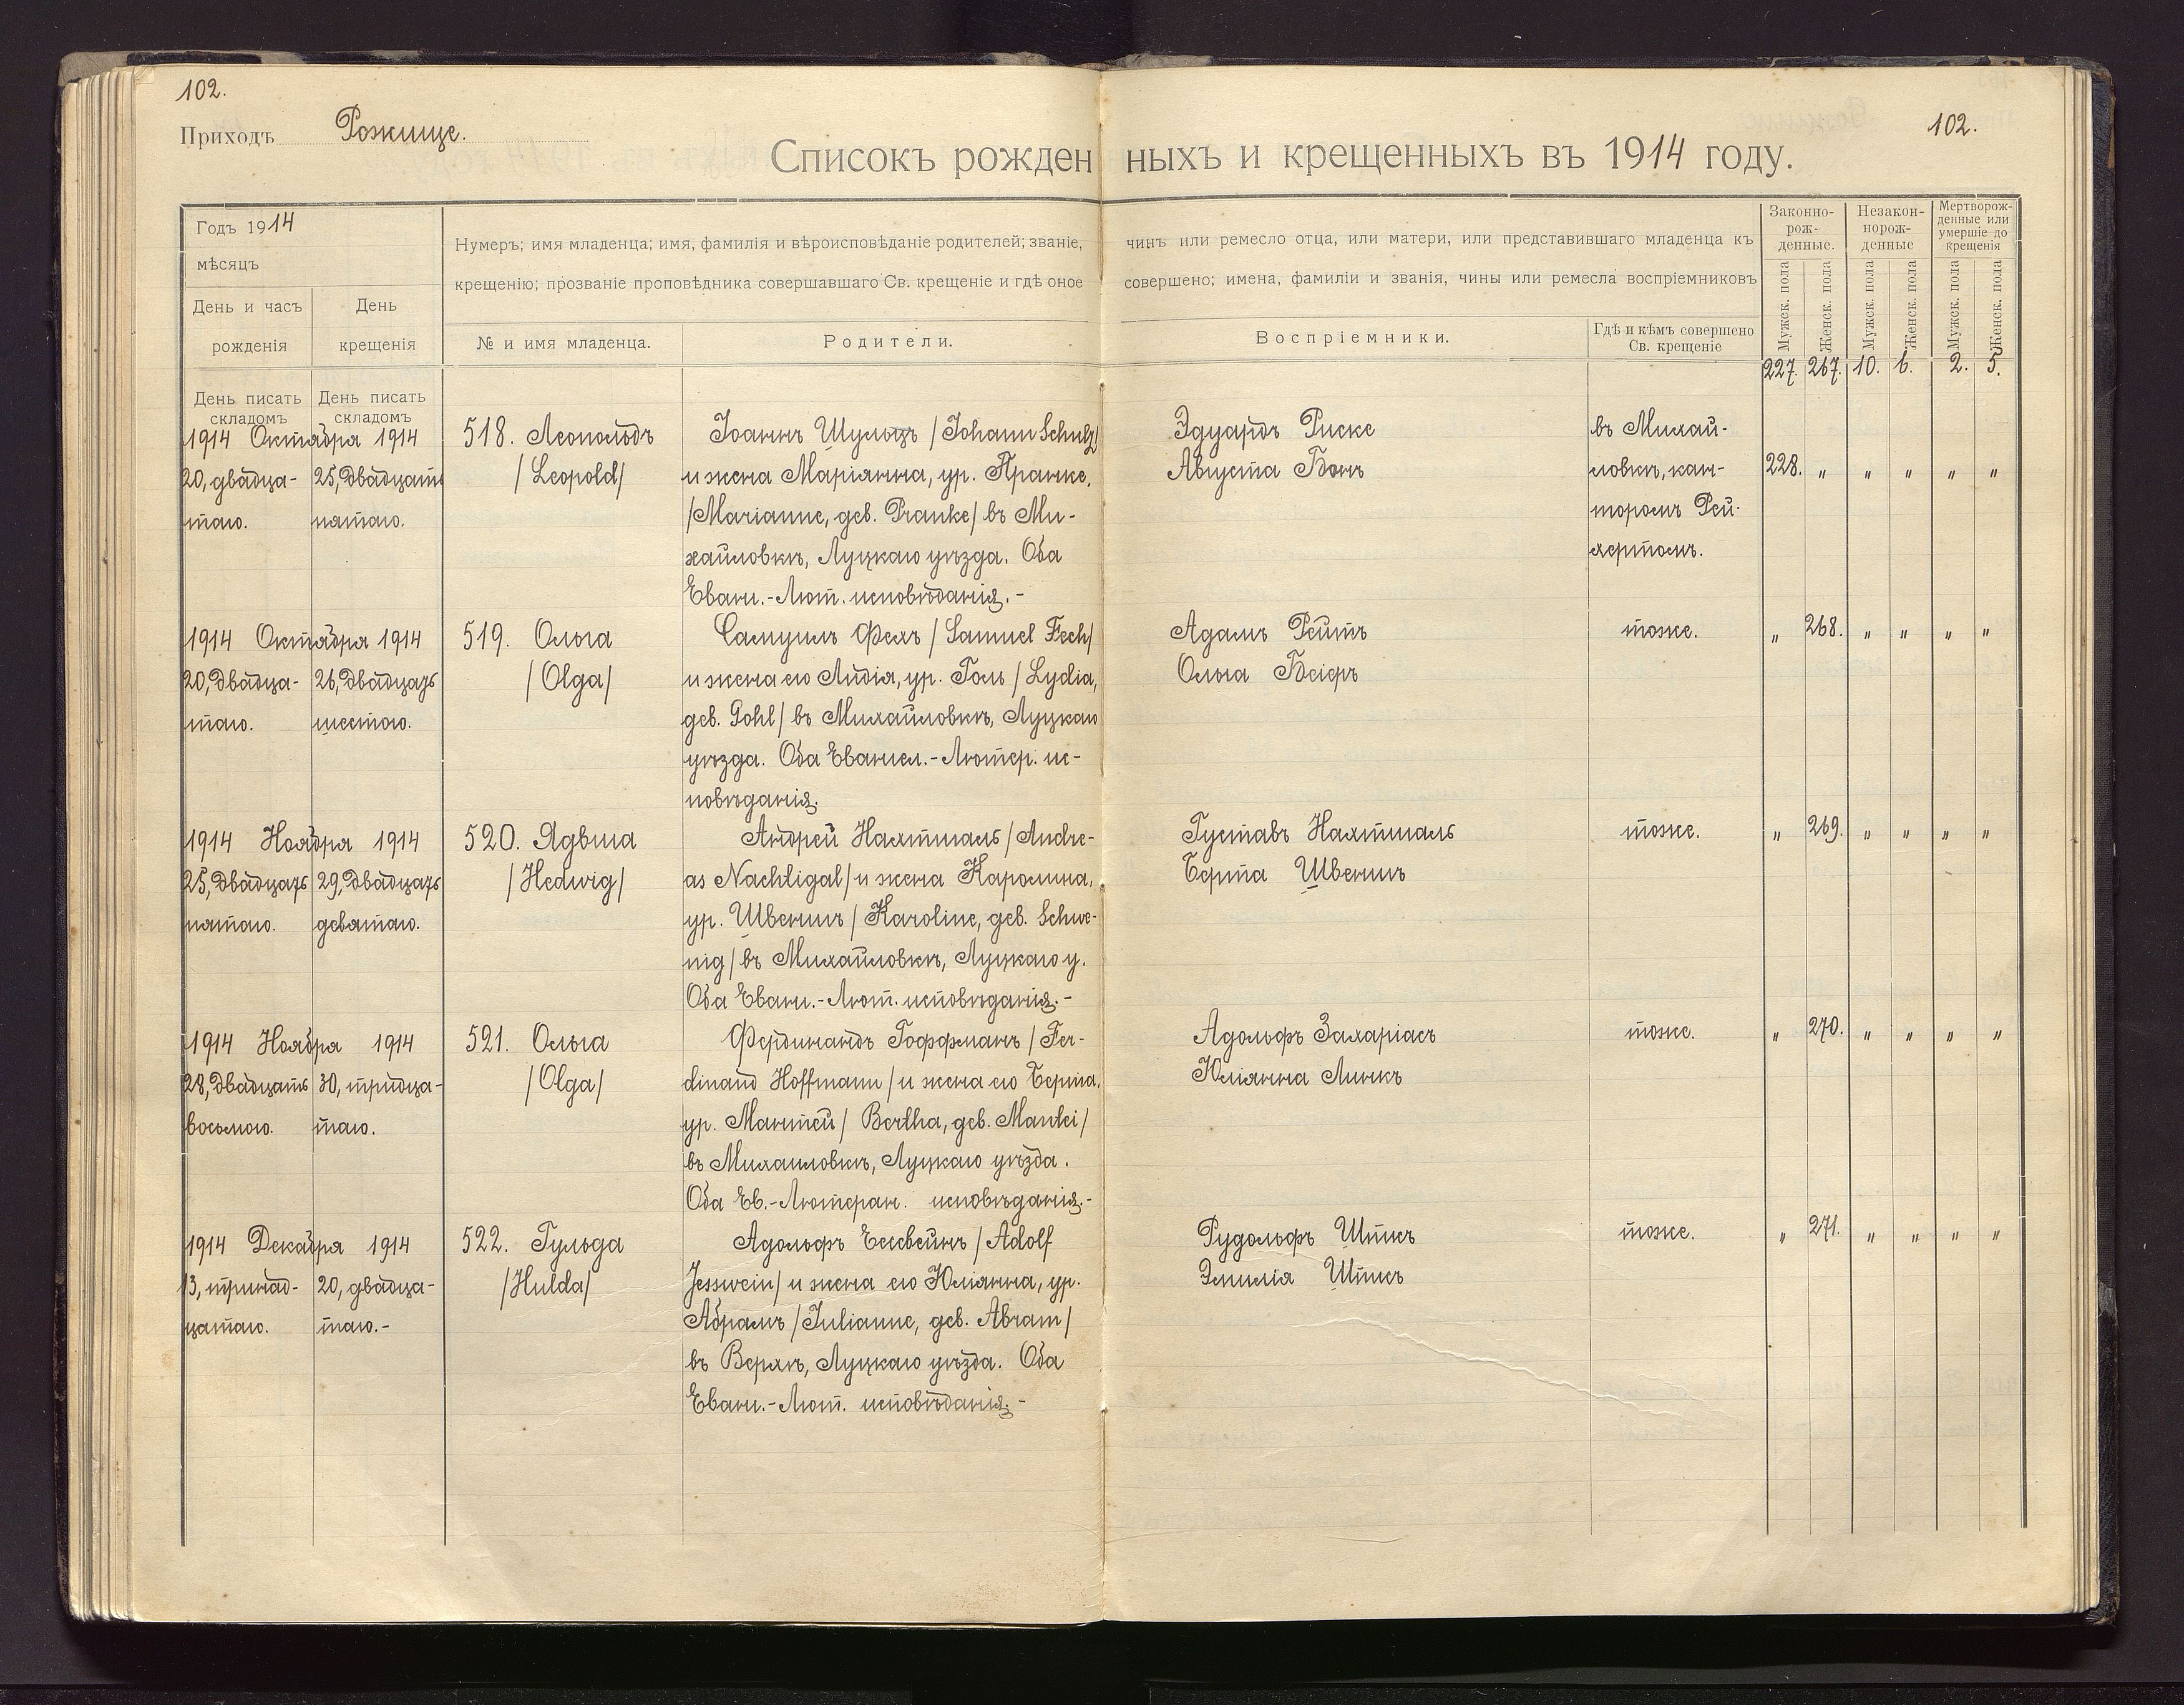 102.
Приходъ Рожище.
102.
Списокъ рожденныхъ и крещенныхъ въ 1914 году.
Годъ 1914
мѣсяцъ
День и часъ рожденія
День крещенія
Нумеръ; имя младенца; имя, фамилія и вѣроисповѣданіе родителей; званіе, чинъ или ремесло отца, или матери, или представившаго младенца къ
крещенію; прозваніе проповѣдника совершавшаго Св. крещеніе и гдѣ оное совершено; имена, фамиліи и званія, чины или ремесла воспріемниковъ
№ и имя младенца.
Родители.
Воспріемники.
Гдѣ и кѣмъ совершено
Св. крещеніе
Законно-
рож-
денные.
Незакон-
норож-
денные
Мертворож-
денные или
умершіе до
крещенія
Мужск. пола
Женск. пола
Мужск. пола
Женск. пола
Мужск. пола
Женск. пола
227. 267. 10. 6. 2. 5.
День писать
складомъ
День писать
складомъ
1914 Октября 1914
20, двадца-
таго.
25, двадцать
пятаго.
518. Леопольдъ
/Leopold/
Іоаннъ Шульцъ /Johann Schulz/
и жена Маріянна, ур. Пранке,
/Marianne, geb. Pranke/ въ Ми-
хайловкѣ, Луцкаго уѣзда. Оба
Еванг.-Лют. исповѣданія.-
Эдуардъ Риске
Августа Бонъ
въ Михай-
ловкѣ, кан-
торомъ Рей-
хертомъ.
228. " " " " "
1914 Октября 1914
20, двадца-
таго.
26, двадцать
шестого.
519. Ольга
/Olga/
Самуилъ Фехъ /Samuel Fech/
и жена его Лидія, ур. Голь /Lydia,
geb. Gohl/ въ Михайловкѣ, Луцкаго
уѣзда. Оба Евангел.-Лютер. ис-
повѣданія.
Адамъ Рейтъ
Ольга Бейеръ
тоже.
" 268. " " " "
1914 Ноября 1914
25, двадцать
пятаго.
29, двадцать
девятаго.
520. Ядвига
/Hedwig/
Андрей Нахтигаль /Andre-
as Nachtigal/ и жена Каролина,
ур. Швенигъ /Karoline, geb. Schwe-
nig/ въ Михайловкѣ, Луцкаго у.
Оба Еванг.-Лют. исповѣданія.-
Густавъ Нахтигаль
Берта Швенигъ
тоже.
" 269. " " " "
1914 Ноября 1914
28, двадцать
восьмого.
30, тридца-
таго.
521. Ольга
/Olga/
Фердинандъ Гоффманъ /Fer-
dinand Hoffmann/ и жена его Берта,
ур. Мантей /Bertha, geb. Mantei/
въ Михаиловкѣ, Луцкаго уѣзда.
Оба Ев.-Лютеран. исповѣданія.-
Адольфъ Захаріасъ
Юліянна Линкъ
тоже.
" 270. " " " "
1914 Декабря 1914
13, тринад-
цатаго.
20, двадца-
таго.-
522. Гульда
/Hulda/
Адольфъ Ессвейнъ /Adolf
Jesswein/ и жена его Юліянна, ур.
Абрамъ /Julianne, geb. Abram/
въ Верхѣ, Луцкаго уѣзда. Оба
Еванг.-Лют. исповѣданія.-
Рудольфъ
Эмилія
тоже.
" 271. " " " "